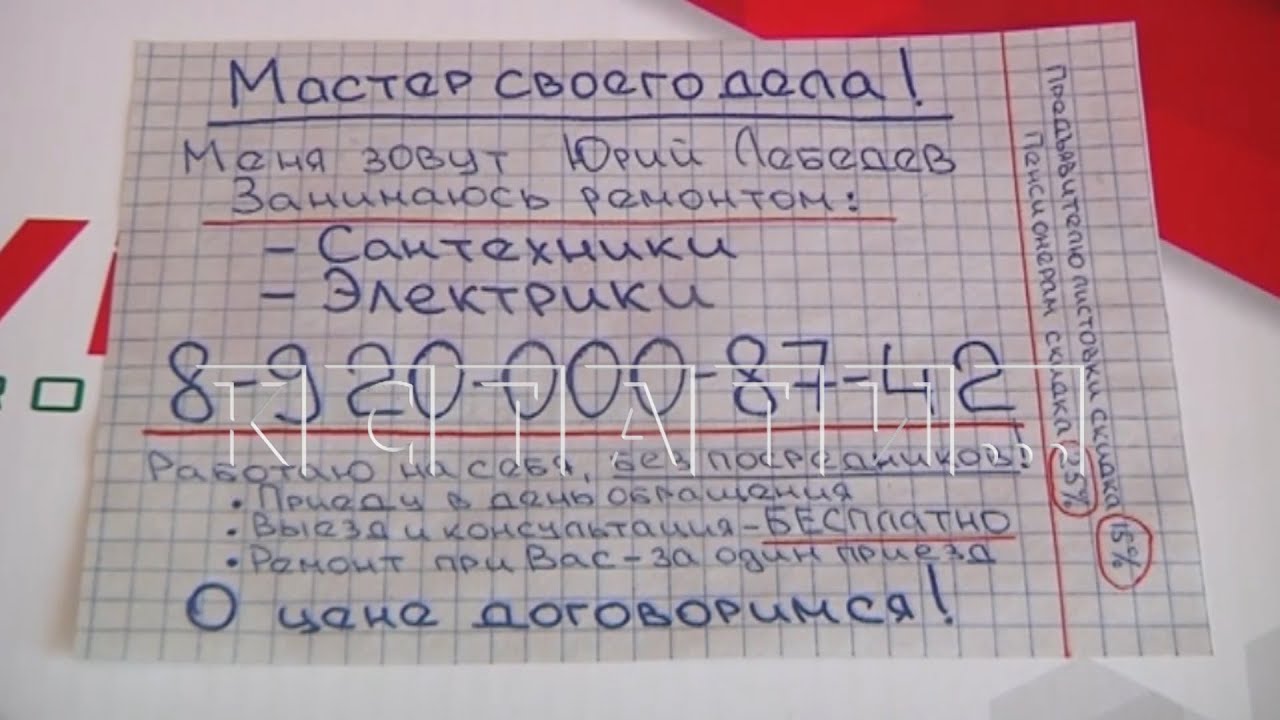 Мастер своего дела!
Меня зовут Юрий Лебедев
Занимаюсь ремонтом:
- Сантехники
- Электрики
8-920-000-87-42
Работаю на себя, без посредников!
• Приеду в день обращения
• Выезд и консультация - БЕСПЛАТНО
• Ремонт при Вас - за один приезд
О цене договоримся!
Предъявителю листовки скидка 15%
Пенсионерам скидка 25%
КСТАТИ...